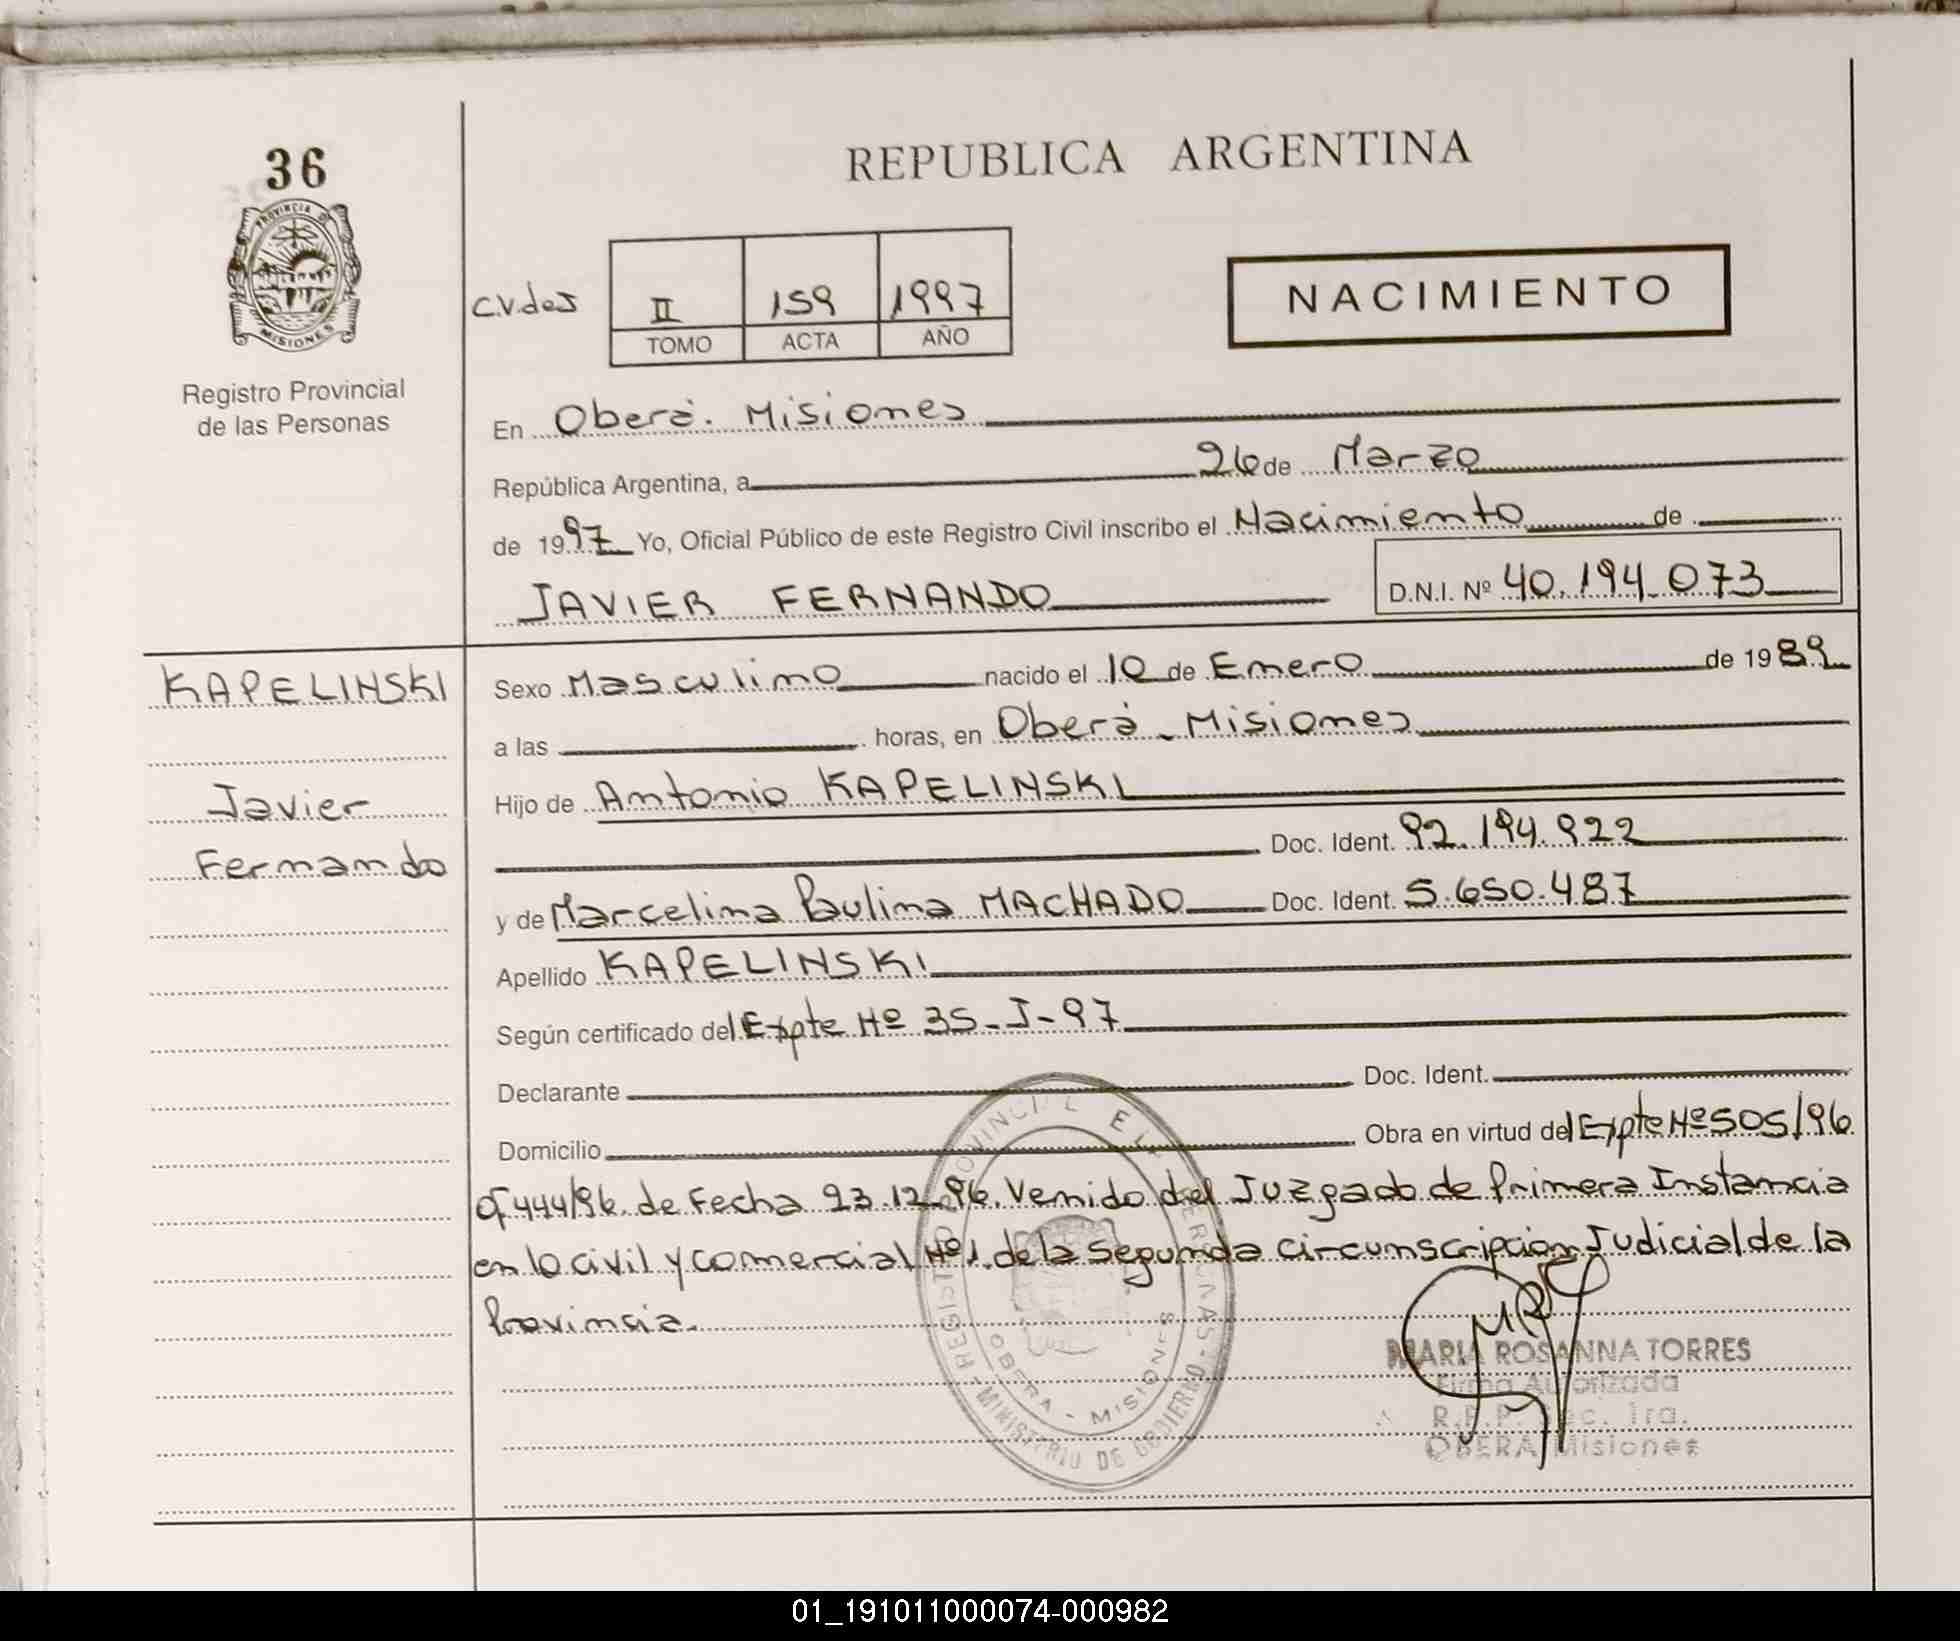 36
PROVINCIA DE
MISIONES
Registro Provincial
de las Personas
REPUBLICA ARGENTINA
C.V.des II 159 1997
TOMO ACTA AÑO
NACIMIENTO
En Oberá. Misiones
República Argentina, a 26 de Marzo
de 1997 Yo, Oficial Público de este Registro Civil inscribo el Nacimiento de
JAVIER FERNANDO D.N.I. Nº 40.194.073
KAPELINSKI
Javier
Fernando
Sexo Masculino nacido el 10 de Enero de 1989
a las horas, en Oberá - Misiones
Hijo de Antonio KAPELINSKI
Doc. Ident. 92.194.922
y de Marcelina Paulina MACHADO Doc. Ident. 5.650.487
Apellido KAPELINSKI
Según certificado del Expte Nº 35-I-97
Declarante Doc. Ident.
Domicilio Obra en virtud del Expte Nº 505/96
of 444/96. de Fecha 23.12.96. Venido del Juzgado de Primera Instancia
en lo civil y comercial Nº1. de la Segunda circunscripción Judicial de la
Provincia.
MINISTERIO DE GOBIERNO
OBERA - MISIONES
MARIA ROSANNA TORRES
Firma Autorizada
R.P.P. Sec. 1ra.
OBERA Misiones
01_191011000074-000982